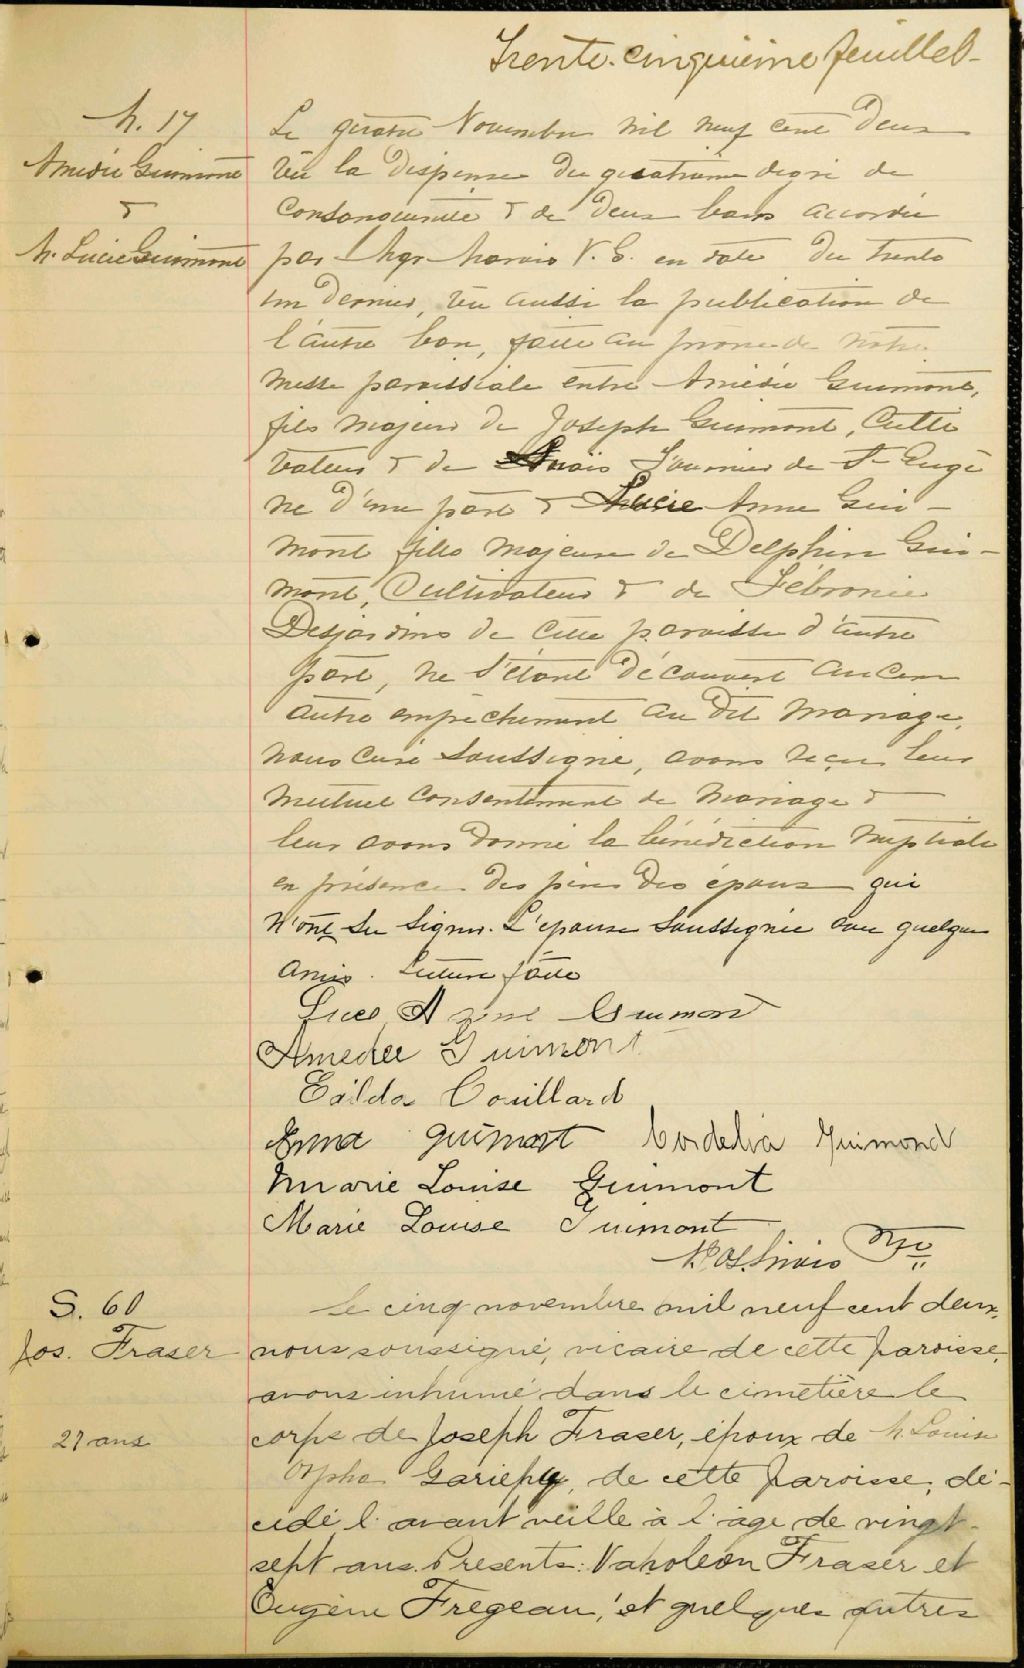 Trente-cinquième feuillet-
M. 17
Amédée Guimont
&
M. Lucie Guimont
Le quatre Novembre mil neuf cent deux
Vu la dispense du quatrième degré de
Consanguinité & de deux bans accordée
par Mgr Marois V. G. en date du trente
un dernier, vu aussi la publication de
l'autre ban, faite au prône de notre
messe paroissiale entre Amédée Guimont,
fils majeur de Joseph Guimont, Culti
vateur & de Anaïs Fournier de St Eugè
ne d'une part & Lucie Anne Gui-
mont fille majeure de Delphin Gui-
mont, Cultivateur & de Fébronie
Desjardins de cette paroisse d'autre
part, ne s'étant découvert aucun
autre empêchement au dit mariage,
nous curé soussigné, avons reçu leur
mutuel consentement de mariage &
leur avons donné la bénédiction nuptiale
en présence des pères des époux qui
n'ont su signer. L'épouse soussignée avec quelques
amis. Lecture faite
Luce Anne Guimont
Amedee Guimont
Exilda Couillard
Anna guimont Cordelia Guimond
Marie Louise Guimont
Marie Louise Guimont
Ptre
S. 60
Jos. Fraser
27 ans
Le cinq novembre mil neuf cent deux,
nous soussigné, vicaire de cette Paroisse,
avons inhumé dans le cimetière le
corps de Joseph Fraser, époux de M. Louise
Orpha Gariepy, de cette Paroisse, dé-
cédé l'avant veille à l'âge de vingt-
sept ans. Présents: Napoléon Fraser et
Eugène Fregeau, et quelques autres